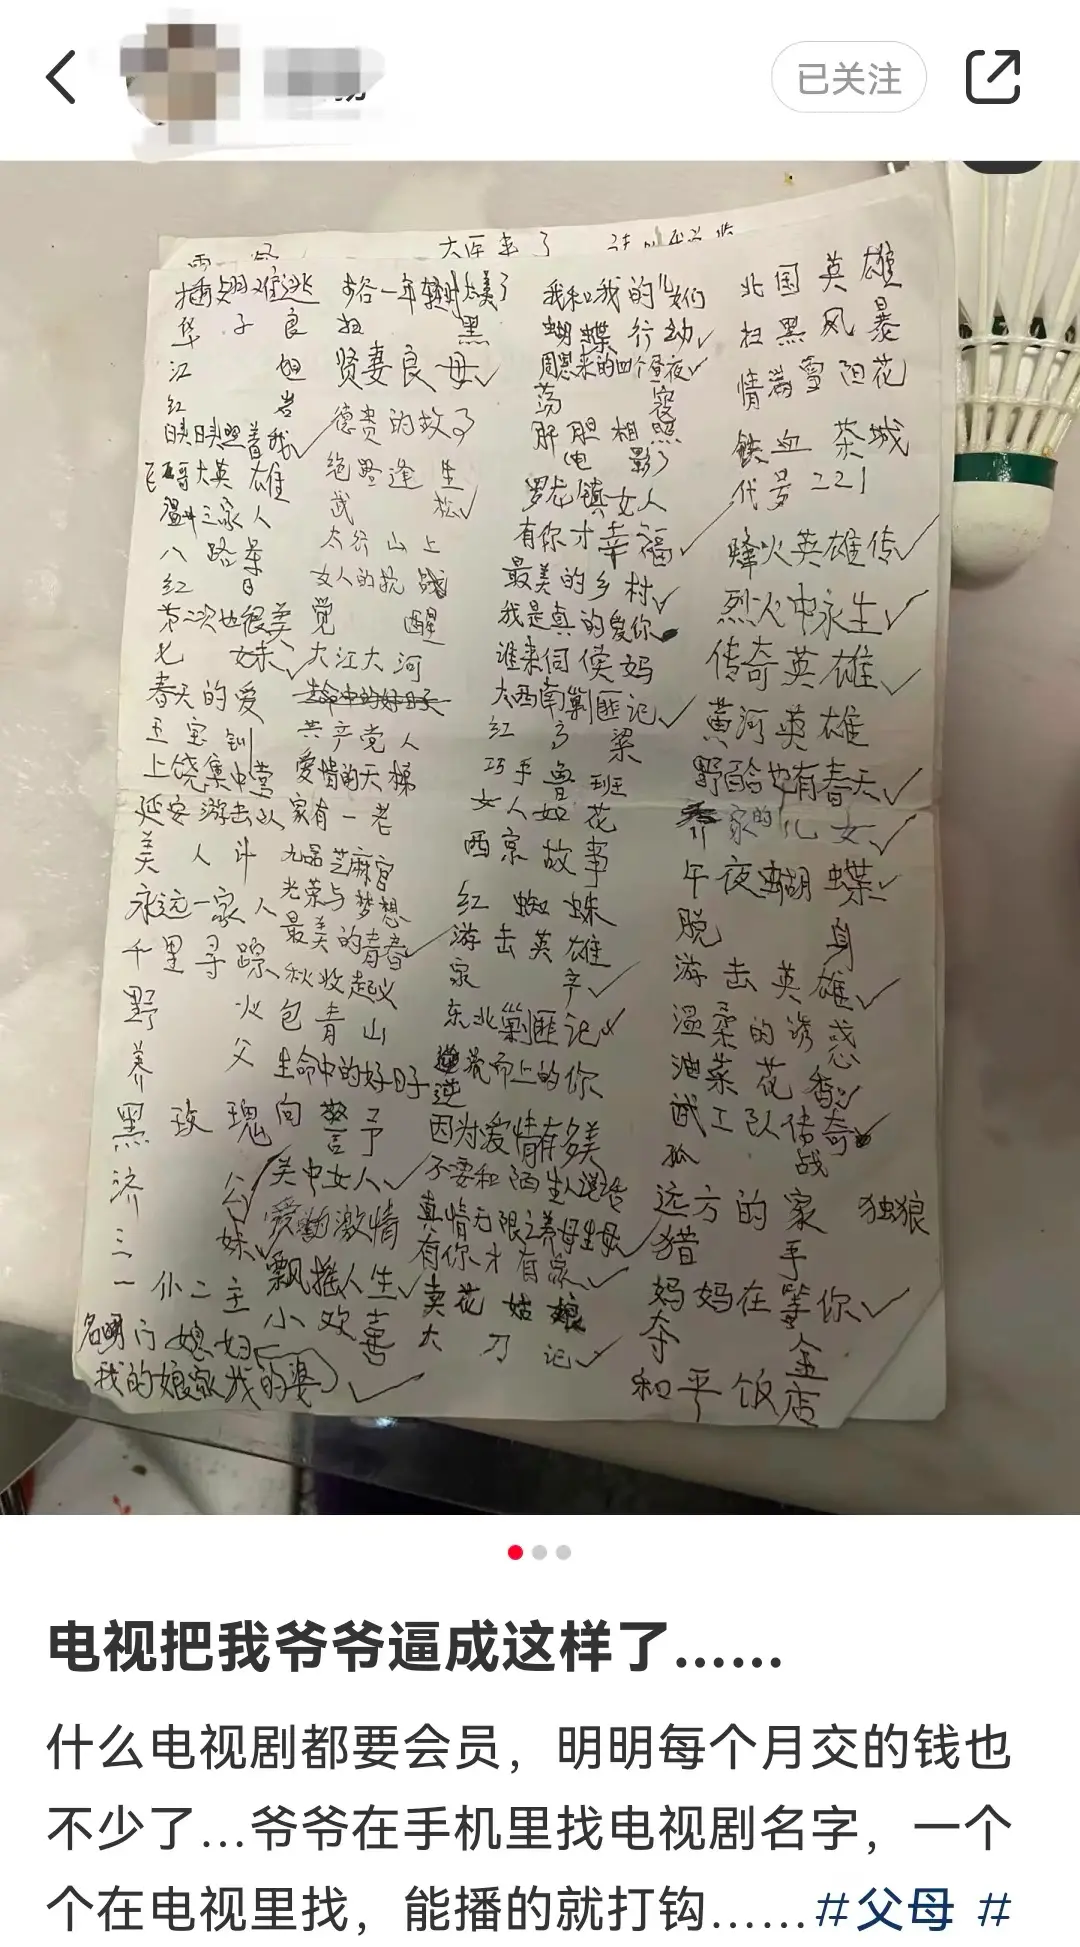 已关注
插翅难逃
华子良
江姐
红岩
映日映照着我
民哥大英雄
温州三家人
八路军
红日
第二次也很美
七妹
春天的爱
王宝钏
上饶集中营
延安游击队
美人斗
永远一家人
千里寻踪
野火
养父
黑玫瑰
济公
三妹
一仆二主
名门媳妇
我的娘家我的婆
扫黑
贤妻良母
德贵的故事
绝路逢生
武松
太行山上
女人的抗战
觉醒
大江大河
共产党人
爱情的天梯
家有一老
九品芝麻官
光荣与梦想
最美的青春
秋收起义
包青山
生命中的好日子
向警予
关中女人
爱的激情
飘摇人生
小欢喜
我和我的儿女们
蝴蝶行动
周恩来的四个昼夜
荡寇
肝胆相照
(电影)
罗龙镇女人
有你才幸福
最美的乡村
我是真的爱你
谁来伺候妈
大西南剿匪记
红高粱
巧手鲁班
女人如花
西京故事
红蜘蛛
游击英雄
家产
东北剿匪记
逆流而上的你
因为爱情有多美
不要和陌生人说话
真情无限之养母生母
有你才有家
卖花姑娘
大刀记
北国英雄
扫黑风暴
情满雪阳花
铁血茶城
代号221
烽火英雄传
烈火中永生
传奇英雄
黄河英雄
野百合也有春天
乔家的儿女
午夜蝴蝶
脱身
游击英雄
温柔的诱惑
油菜花香
武工队传奇
孤战
远方的家
独狼
猎手
妈妈在等你
夺金
和平饭店
电视把我爷爷逼成这样了……
什么电视剧都要会员，明明每个月交的钱也
不少了…爷爷在手机里找电视剧名字，一个
个在电视里找，能播的就打钩……#父母 #